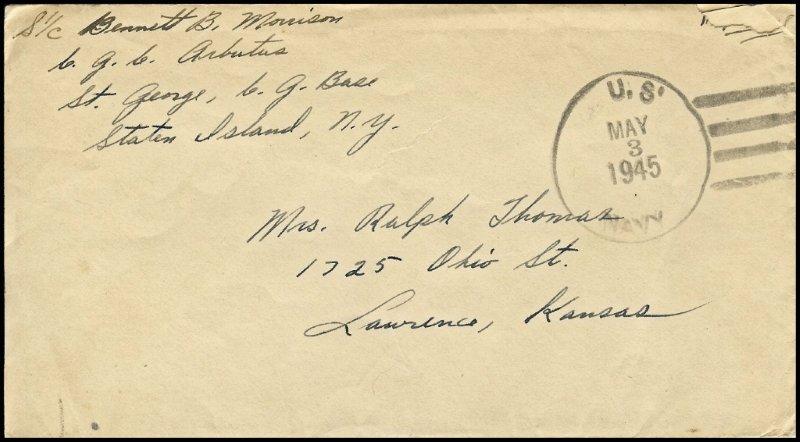 S 1/c Bennett B. Morrison
C. G. C. Arbutus
St. George, C. G. Base
Staten Island, N.Y.
U. S.
MAY
3
1945
NAVY
Mrs. Ralph Thomas
1725 Ohio St.
Lawrence, Kansas